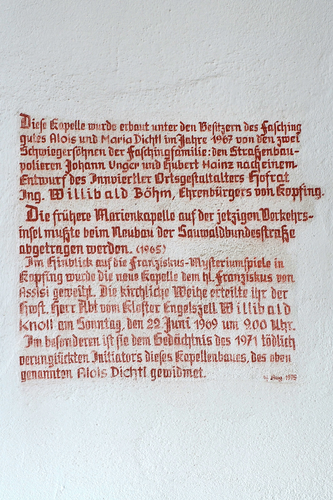 Diese Kapelle wurde erbaut unter den Besitzern des Fasching
gutes Alois und Maria Dichtl im Jahre 1967 von den zwei
Schwiegersöhnen der Faschingfamilie: den Straßenbau-
polieren Johann Unger und Hubert Hainz nach einem
Entwurf des Innviertler Ortsgestalters Hofrat
Ing. Willibald Böhm, Ehrenbürgers von Kopfing.
Die frühere Marienkapelle auf der jetzigen Verkehrs-
insel mußte beim Neubau der Sauwaldbundesstraße
abgetragen werden. (1965)
Im Hinblick auf die Franziskus-Mysterienspiele in
Kopfing wurde die neue Kapelle dem hl. Franziskus von
Assisi geweiht. Die kirchliche Weihe erteilte ihr der
Hoft. Herr Abt vom Kloster Engelszell Willibald
Knoll am Sonntag, den 22. Juni 1969 um 9.00 Uhr.
Im besonderen ist sie dem Gedächtnis des 1971 tödlich
verunglückten Initiators dieses Kapellenbaues, des oben
genannten Alois Dichtl gewidmet.
Aug. 1975